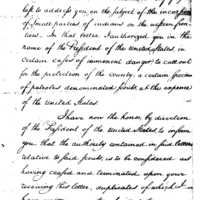 last to address you on the subject of the incursions
of small parties of indians on the western fron-
tiers. In that letter I authorized you in the
name of the President of the United States, in
certain cases of imminent danger to call out
for the protection of the county, a certain species
of patroles denominated scouts, at the expence
of the United States
I have now the honor, by direction
of the President of the United States, to inform
you that the authority contained in said letter
relative to said scouts, is to be considered as
having ceased and terminated upon your
receiving this letter, duplicates of which I